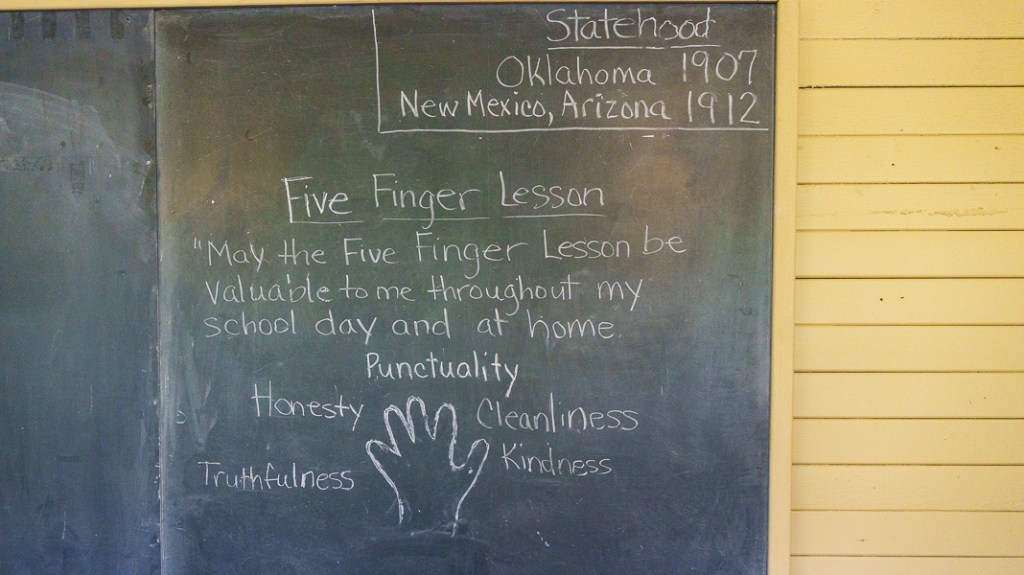 Statehood
Oklahoma 1907
New Mexico, Arizona 1912
Five Finger Lesson
"May the Five Finger Lesson be
valuable to me throughout my
school day and at home.
Punctuality
Honesty
Cleanliness
Kindness
Truthfulness